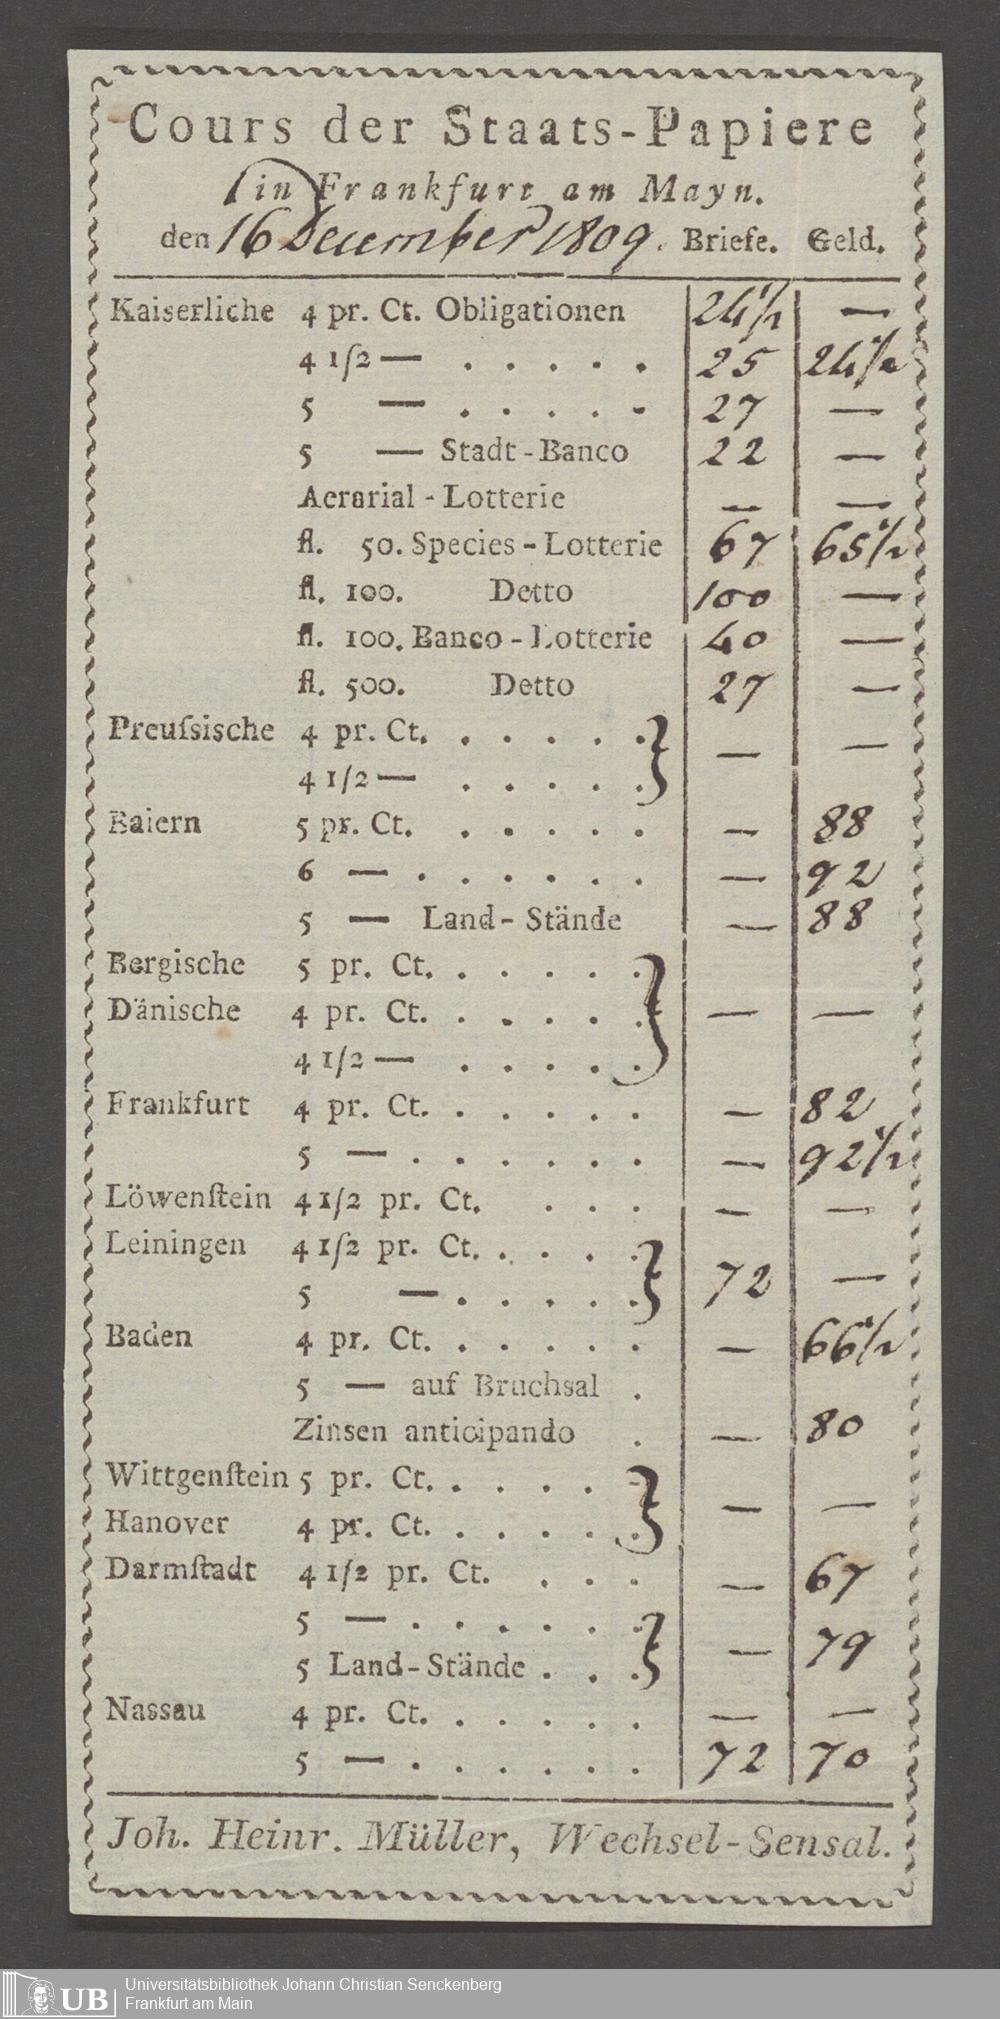 Cours der Staats-Papiere
in Frankfurt am Mayn.
den 16 December 1809. Briefe. Geld.
Kaiserliche 4 pr. Ct. Obligationen 24 1/2 —
4 1/2 — . . . . . 25 24 1/2
5 — . . . . . 27 —
5 — Stadt-Banco 22 —
Aerarial-Lotterie — —
fl. 50. Species-Lotterie 67 65 1/2
fl. 100. Detto 100 —
fl. 100. Banco-Lotterie 40 —
fl. 500. Detto 27 —
Preuſsische 4 pr. Ct. . . . . . — —
4 1/2 — . . . . .
Baiern 5 pr. Ct. . . . . . — 88
6 — . . . . . . — 92
5 — Land-Stände — 88
Bergische 5 pr. Ct. . . . . .
Dänische 4 pr. Ct. . . . . . — —
4 1/2 — . . . . .
Frankfurt 4 pr. Ct. . . . . . — 82
5 — . . . . . . — 92 1/2
Löwenſtein 4 1/2 pr. Ct. . . . — —
Leiningen 4 1/2 pr. Ct. . . . .
5 — . . . . . 72 —
Baden 4 pr. Ct. . . . . . — 66 1/2
5 — auf Bruchsal .
Zinsen anticipando . — 80
Wittgenſtein 5 pr. Ct. . . . . .
Hanover 4 pr. Ct. . . . . . — —
Darmſtadt 4 1/2 pr. Ct. . . . — 67
5 — . . . . . .
5 Land-Stände . . . — 79
Nassau 4 pr. Ct. . . . . . — —
5 — . . . . . . 72 70
Joh. Heinr. Müller, Wechsel-Sensal.
UB
Universitätsbibliothek Johann Christian Senckenberg
Frankfurt am Main